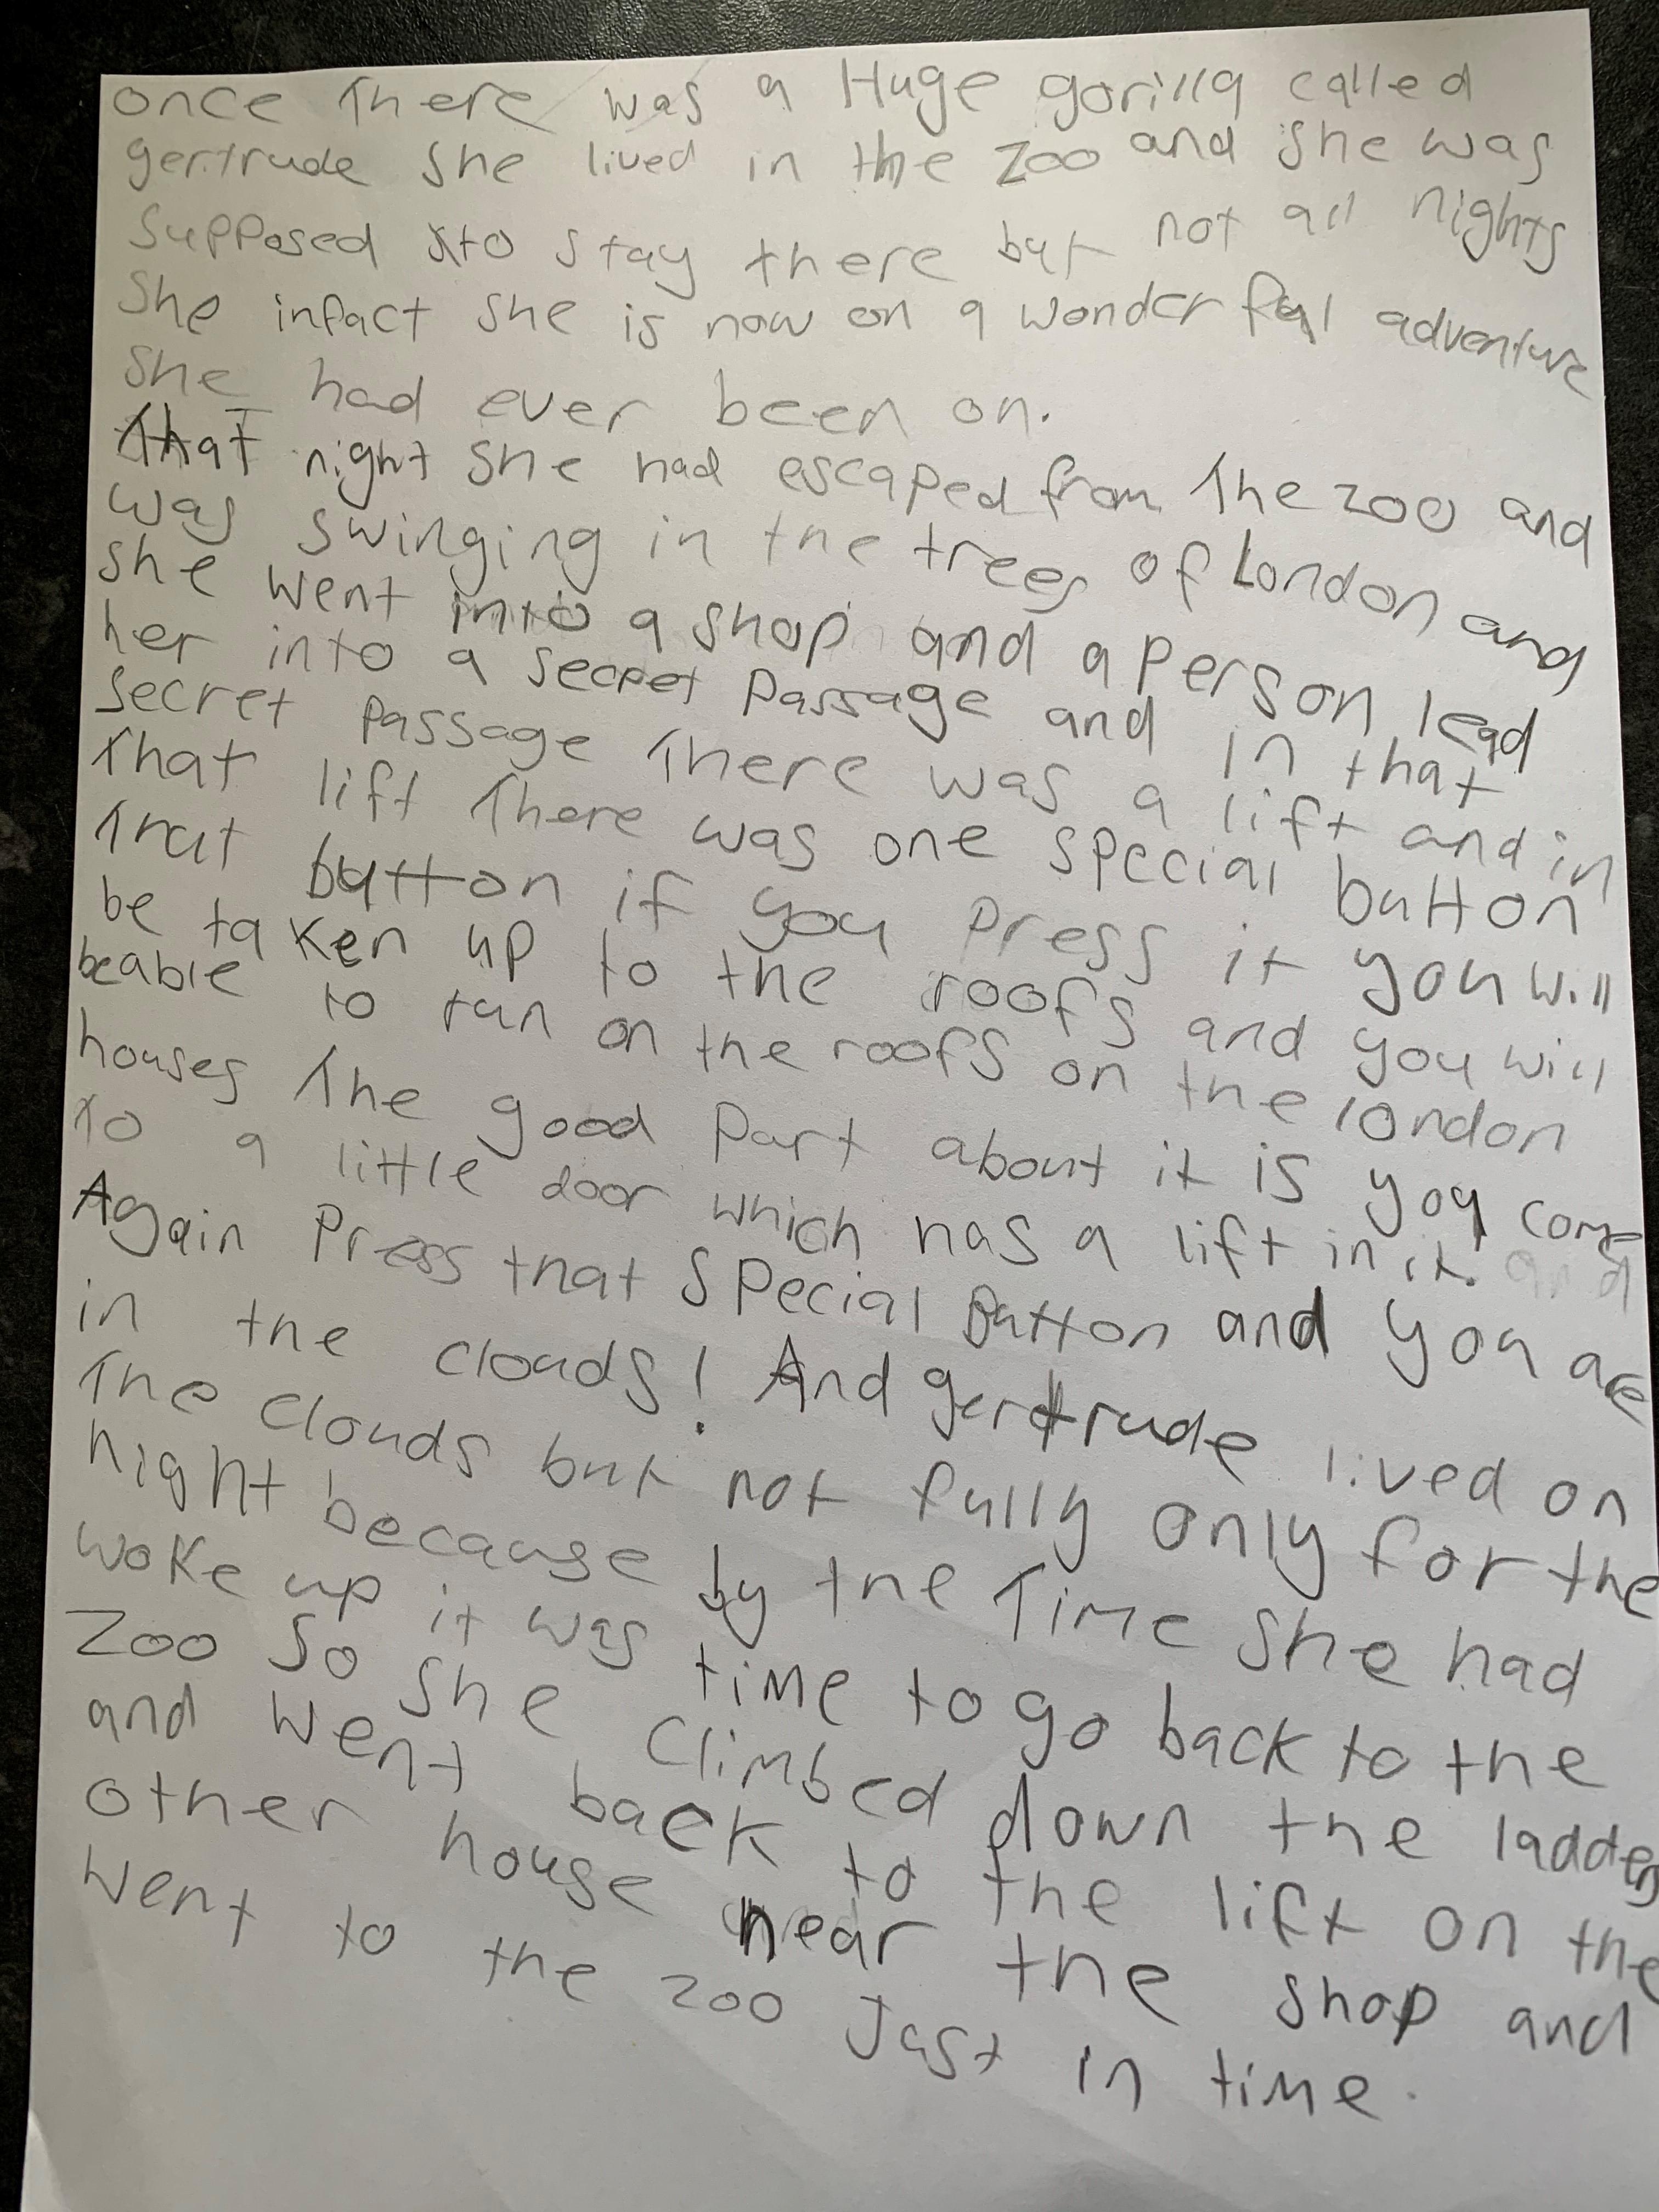 once There was a Huge gorilla called
gertrude she lived in the Zoo and she was
supposed to stay there but not all nights
She infact she is now on a wonderful adventure
She had ever been on.
That night she had escaped from The zoo and
was swinging in the trees of London and
she went into a shop and a person lead
her into a secret passage and in that
secret passage There was a lift and in
That lift There was one special button
That button if you press it you will
be taken up to the roofs and you will
beable to run on the roofs on the london
houses The good part about it is you come
to a little door which has a lift in it. and
Again press that special Button and you are
in the clouds! And gertrude lived on
The clouds but not fully only for the
night because by the Time she had
woke up it was time to go back to the
Zoo so she climbed down the ladder
and went back to the lift on the
other house near the shop and
went to the zoo Just in time.